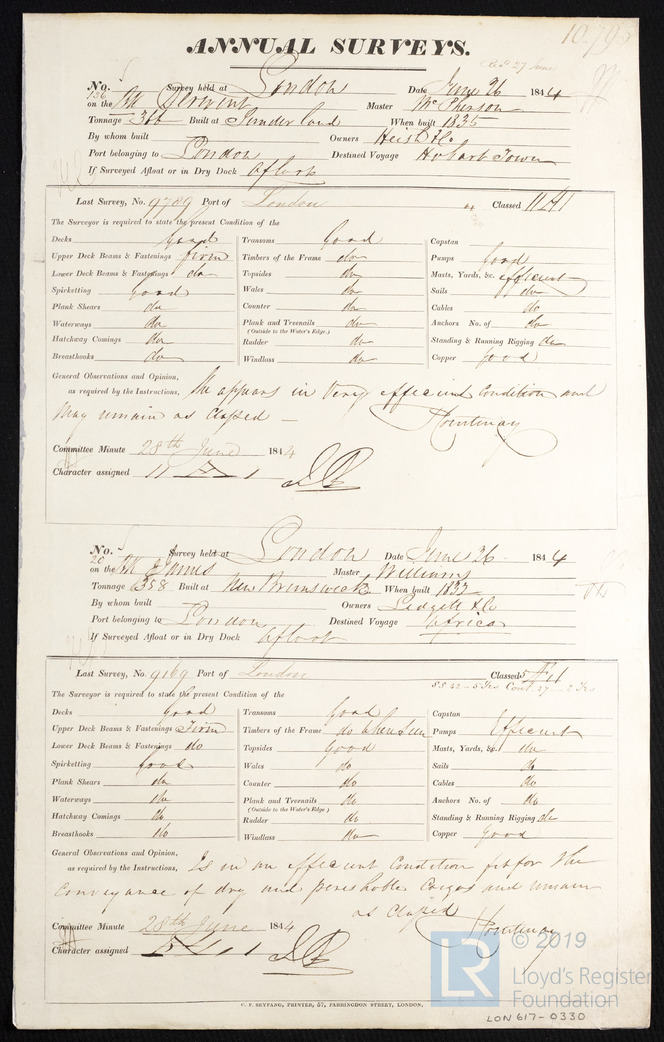 1079
ANNUAL SURVEYS.
Recd 27 June
No. 136 Survey held at London Date June 26 1844
on the Sh Derwent Master McPherson
Tonnage 366 Built at Sunderland When built 1835
By whom built Owners Heish & Co
Port belonging to London Destined Voyage Hobart Town
If Surveyed Afloat or in Dry Dock Afloat
Last Survey, No. 9709 Port of London Classed 11 A 1
The Surveyor is required to state the present Condition of the
Decks Good Transoms Good Capstan
Upper Deck Beams & Fastenings firm Timbers of the Frame do Pumps Good
Lower Deck Beams & Fastenings do Topsides do Masts, Yards, &c. efficient
Spirketting Good Wales do Sails do
Plank Shears do Counter do Cables do
Waterways do Plank and Treenails do Anchors No. of do
(Outside to the Water's Edge.)
Hatchway Comings do Rudder do Standing & Running Rigging do
Breasthooks do Windlass do Copper Good
General Observations and Opinion,
as required by the Instructions, She appears in Very efficient Condition and
May remain as Classed —
Courtenay
Committee Minute 28th June 1844
Character assigned 11 A 1
No. 20 Survey held at London Date June 26 1844
on the Sh St James Master Williams
Tonnage 358 Built at New Brunswick When built 1832
By whom built Owners Lidgett & Co
Port belonging to London Destined Voyage Africa
If Surveyed Afloat or in Dry Dock Afloat
Last Survey, No. 9169 Port of London Classed 5 Æ 1
The Surveyor is required to state the present Condition of the
Decks Good Transoms Good Capstan
Upper Deck Beams & Fastenings Firm Timbers of the Frame do when seen Pumps Efficient
Lower Deck Beams & Fastenings do Topsides Good Masts, Yards, &c. do
Spirketting Good Wales do Sails do
Plank Shears do Counter do Cables do
Waterways do Plank and Treenails do Anchors No. of do
(Outside to the Water's Edge)
Hatchway Comings do Rudder do Standing & Running Rigging do
Breasthooks do Windlass do Copper Good
General Observations and Opinion,
as required by the Instructions, Is in an efficient Condition fit for the
Conveyance of dry and perishable Cargos and remain
as Classed Courtenay
Committee Minute 28th June 1844
Character assigned
C. F. SEYFANG, PRINTER, 57, FARRINGDON STREET, LONDON.
LR © 2019
Lloyd's Register
Foundation
LON 617-0330